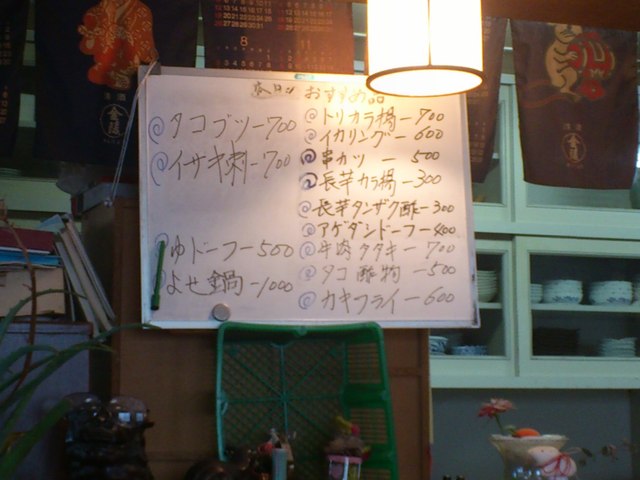 おすすめ品
タコブツ-700
イサキ刺-700
ゆドーフ-500
よせ鍋-1000
トリカラ揚-700
イカリング-600
串カツ-500
長芋カラ揚-300
長芋タンザク酢-300
アゲダシドーフ-400
牛肉タタキ-700
タコ酢物-500
カキフライ-600
清酒
金陵
清酒
金陵
8